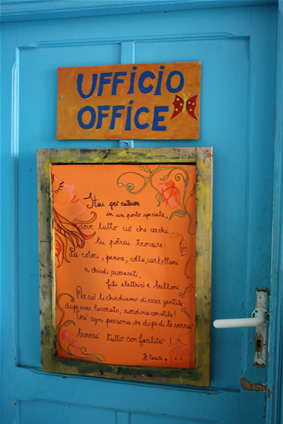 UFFICIO
OFFICE
Stai per entrare
in un posto speciale,
dove tutto ciò che cerchi
tu potrai trovare:
da colori, penne, colla, cartelloni
a chiodi
fili elettrici e bulloni.
Perciò ti chiediamo di esser gentile
dopo aver lavorato, riordina con stile!
Così ogni persona che dopo di te verrà
troverà tutto con facilità!